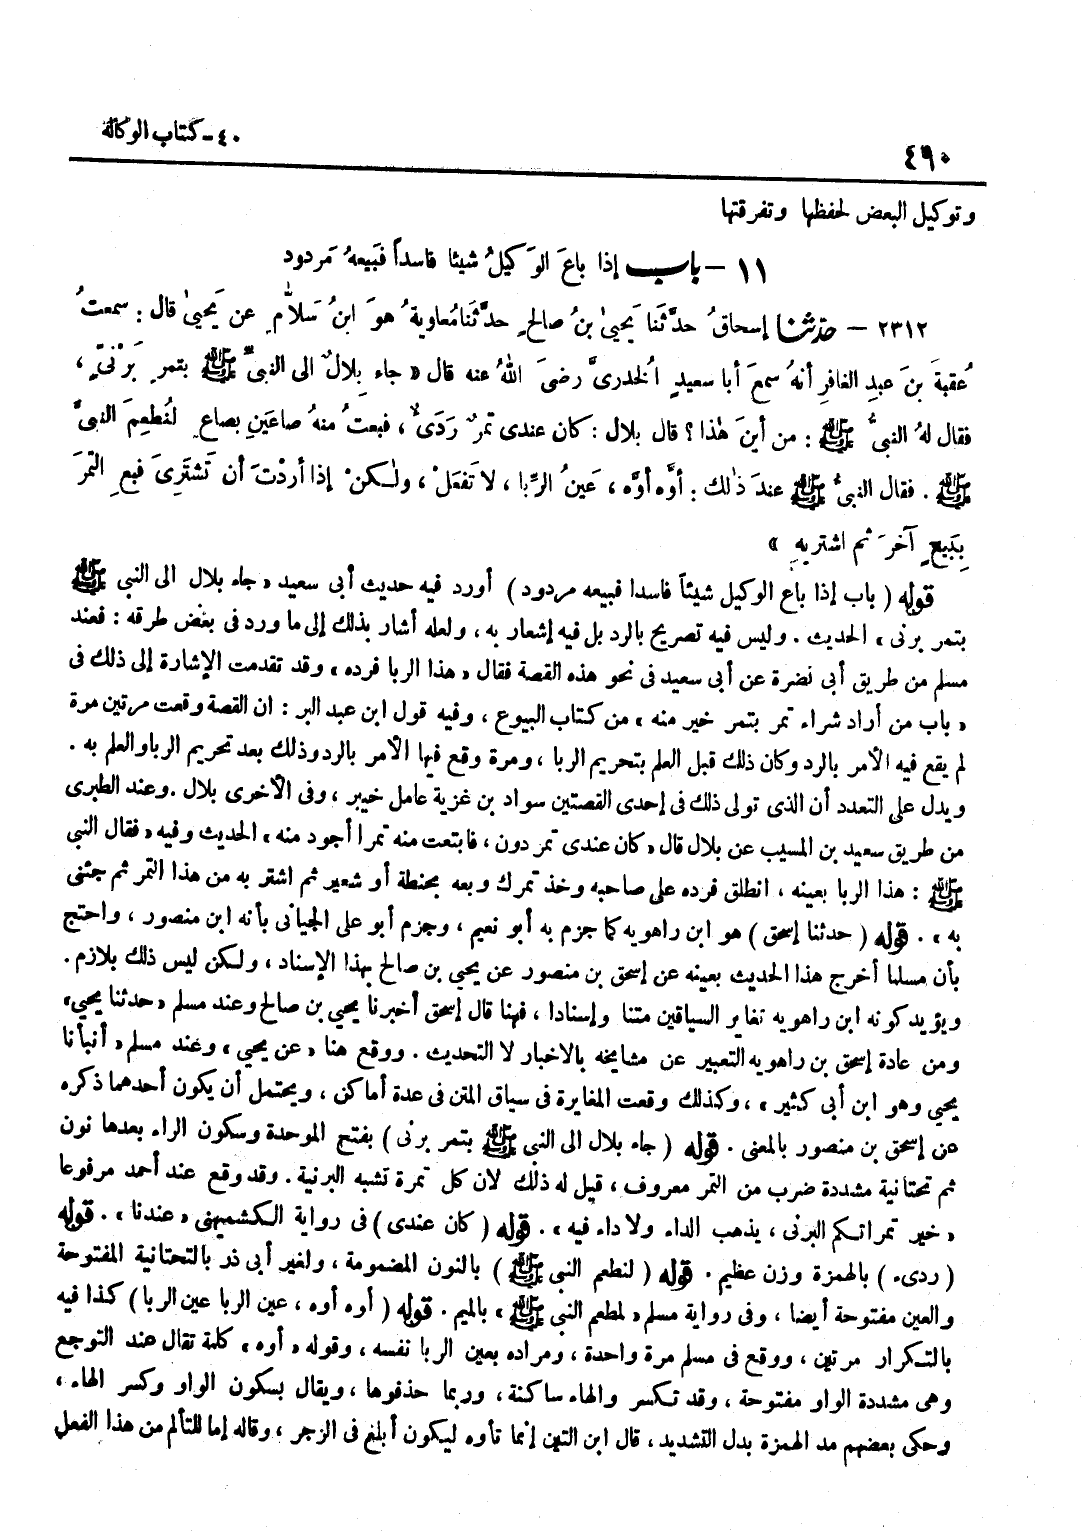 ٤٩٠
٤٠ - كتاب الوكالة
وتوكيل البعض لحفظها وتفرقتها
١١ - باب إذا باعَ الوَكيلُ شيئا فاسداً فبَيعهُ مَردود
٢٣١٢ - حدثنا إسحاقُ حدَّثَنا يَحيىٰ بنُ صالحٍ حدَّثَنا مُعاويةُ هوَ ابنُ سَلاَّمٍ عن يَحيىٰ قال : سمعتُ
عُقبةَ بنَ عبدِ الغافرِ أنهُ سمعَ أبا سعيدٍ الُخدرىَّ رضىَ اللهُ عنه قال « جاء بِلالٌ الى النبىِّ ﷺ بتمرٍ بَرْنىّ ،
فقال لهُ النبىُّ ﷺ : من أينَ هٰذا ؟ قال بلال : كان عندى تمرٌ رَدَىءٌ ، فبعتُ منهُ صاعَينِ بصاعٍ لنُطعِمَ النبىَّ
ﷺ . فقال النبىُّ ﷺ عندَ ذٰلك : أوَّه أوَّه ، عَينُ الرِّبا ، لا تَفعَلْ ، ولٰكنْ إذا أردْتَ أن تَشترىَ فبعِ التمرَ
بِبَيعٍ آخرَ ثم اشترِيهِ »
قوله ( باب إذا باع الوكيل شيئاً فاسدا فبيعه مردود ) أورد فيه حديث أبى سعيد « جاء بلال الى النبى ﷺ
بتمر برنى » الحديث . وليس فيه تصريح بالرد بل فيه إشعار به ، ولعله أشار بذلك إلى ما ورد فى بعض طرقه : فعند
مسلم من طريق أبى نضرة عن أبى سعيد فى نحو هذه القصة فقال « هذا الربا فرده » وقد تقدمت الإشارة إلى ذلك فى
« باب من أراد شراء تمر بتمر خير منه » من كتاب البيوع ، وفيه قول ابن عبد البر : ان القصة وقعت مرتين مرة
لم يقع فيه الأمر بالرد وكان ذلك قبل العلم بتحريم الربا ، ومرة وقع فيها الأمر بالرد وذلك بعد تحريم الربا والعلم به .
ويدل على التعدد أن الذى تولى ذلك فى إحدى القصتين سواد بن غزية عامل خيبر ، وفى الأخرى بلال . وعند الطبرى
من طريق سعيد بن المسيب عن بلال قال « كان عندى تمر دون ، فابتعت منه تمرا أجود منه » الحديث وفيه « فقال النبى
ﷺ : هذا الربا بعينه ، انطلق فرده على صاحبه وخذ تمرك وبعه بحنطة أو شعير ثم اشتر به من هذا التمر ثم جئنى
به » . قوله ( حدثنا إسحق ) هو ابن راهويه كما جزم به أبو نعيم ، وجزم أبو على الجيانى بأنه ابن منصور ، واحتج
بأن مسلما أخرج هذا الحديث بعينه عن إسحق بن منصور عن يحيى بن صالح بهذا الإسناد ، ولكن ليس ذلك بلازم .
ويؤيد كونه ابن راهويه تغاير السياقين متنا وإسنادا ، فهنا قال إسحق أخبرنا يحيى بن صالح وعند مسلم « حدثنا يحيى »
ومن عادة إسحق بن راهويه التعبير عن مشايخه بالاخبار لا التحديث . ووقع هنا « عن يحيى » وعند مسلم « أنبأنا
يحيى وهو ابن أبى كثير » ، وكذلك وقعت المغايرة فى سياق المتن فى عدة أماكن ، ويحتمل أن يكون أحدهما ذكره
عن إسحق بن منصور بالمعنى . قوله ( جاء بلال الى النبى ﷺ بتمر برنى ) بفتح الموحدة وسكون الراء بعدها نون
ثم تحتانية مشددة ضرب من التمر معروف ، قيل له ذلك لان كل تمرة تشبه البرنية . وقد وقع عند أحمد مرفوعا
« خير تمراتكم البرنى ، يذهب الداء ولا داء فيه » . قوله ( كان عندى ) فى رواية الكشميهنى « عندنا » . قوله
( ردىء ) بالهمزة وزن عظيم . قوله ( لنطعم النبى ﷺ ) بالنون المضمومة ، ولغير أبى ذر بالتحتانية المفتوحة
والعين مفتوحة أيضا ، وفى رواية مسلم « لمطعم النبى ﷺ » بالميم . قوله ( أوه أوه ، عين الربا عين الربا ) كذا فيه
بالتكرار مرتين ، ووقع فى مسلم مرة واحدة ، ومراده بعين الربا نفسه ، وقوله « أوه » كلمة تقال عند التوجع
وهى مشددة الواو مفتوحة ، وقد تكسر والهاء ساكنة ، وربما حذفوها ، ويقال بسكون الواو وكسر الهاء ،
وحكى بعضهم مد الهمزة بدل التشديد ، قال ابن التين إنما تأوه ليكون أبلغ فى الزجر ، وقاله إما للتألم من هذا الفعل